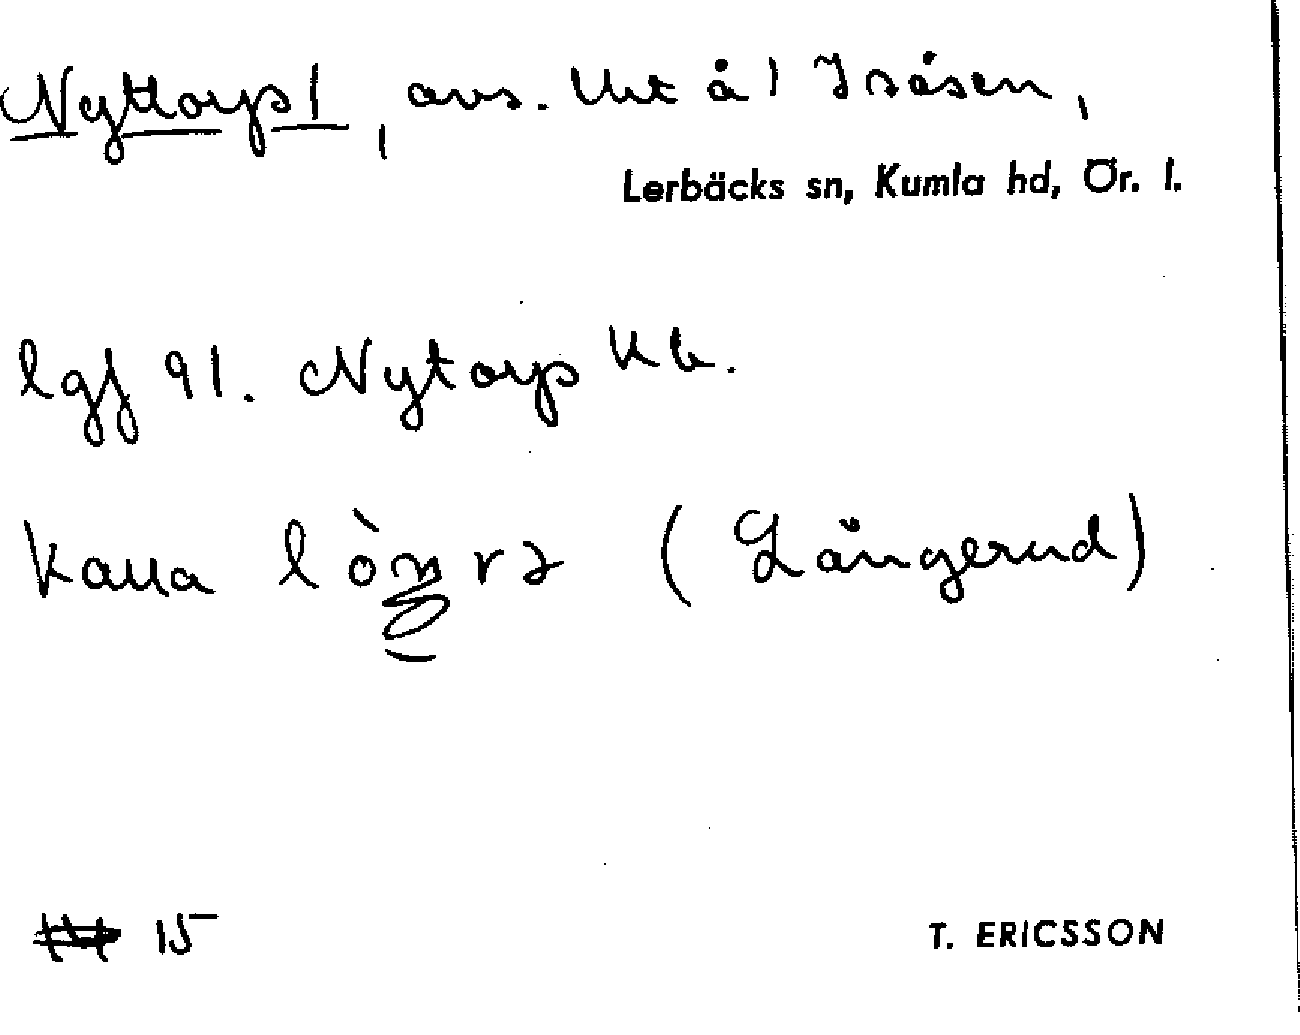 Nyttorp 1, avs. lht å 1 Isåsen,
Lerbäcks sn, Kumla hd, Ör. l.
lgf 91. Nytorp
Kalla (Långerud)
15
T. ERICSSON